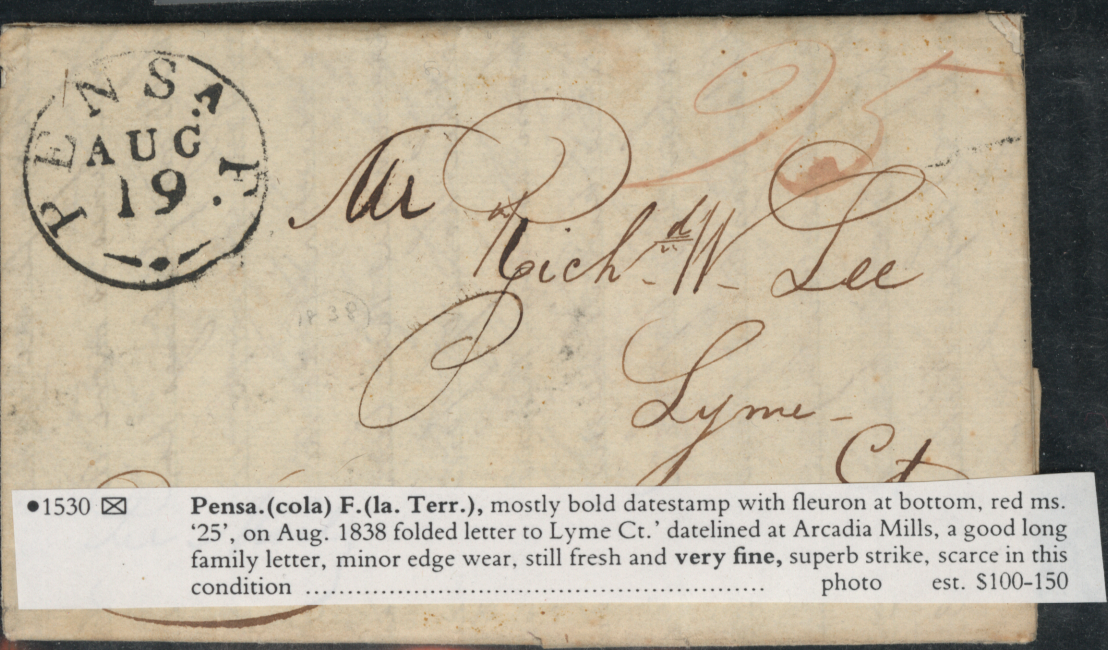 PENSA. F.
AUG
19
25
Mr
Richd. W. Lee
Lyme -
Ct
1838
•1530 ☒ Pensa.(cola) F.(la. Terr.), mostly bold datestamp with fleuron at bottom, red ms.
‘25’, on Aug. 1838 folded letter to Lyme Ct.’ datelined at Arcadia Mills, a good long
family letter, minor edge wear, still fresh and very fine, superb strike, scarce in this
condition .................................................................. photo est. $100-150